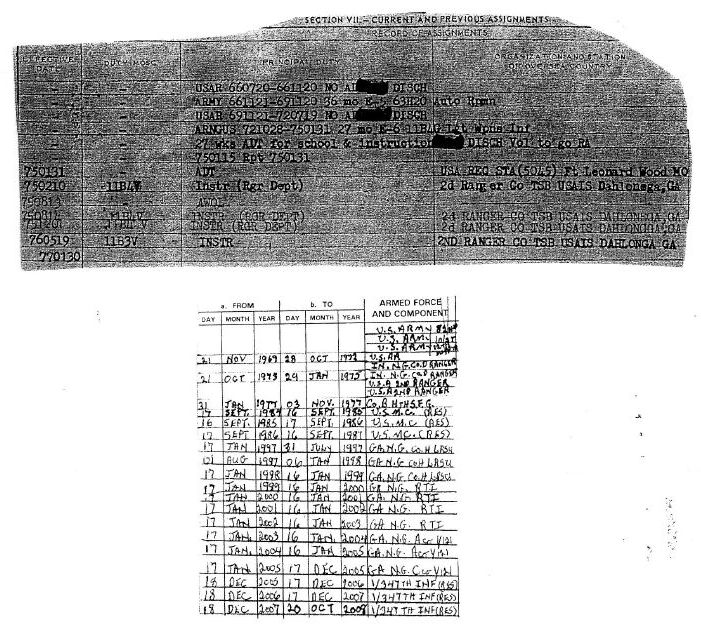 SECTION VII - CURRENT AND PREVIOUS ASSIGNMENTS
RECORD OF ASSIGNMENTS
EFFECTIVE DATE DUTY MOSC PRINCIPAL DUTY ORGANIZATION AND STATION OR OVERSEA COUNTRY
USAR 660720-661120 NO DISCH
ARMY 661121-691120 36 mo E-5 63H20 Auto Rpmn
USAR 691121-720719 NO DISCH
ARNGUS 721028-750131 27 mo E-6 11B4G Lgt Wpns Inf
27 wks ADT for school & instruction DISCH Vol to go RA
750115 Rpt 750131
750131 ADT USA REC STA(5045) Ft Leonard Wood MO
750210 11B4W Instr (Rgr Dept) 2d Ranger Co TSB USAIS Dahlonega,GA
AWOL
INSTR (RGR DEPT) 2d RANGER CO TSB USAIS DAHLONEGA,GA
751201 INSTR (RGR DEPT) 2d RANGER CO TSB USAIS DAHLONEGA,GA
760519 11B3V INSTR 2ND RANGER CO TSB USAIS DAHLONGA GA
770130
a. FROM b. TO ARMED FORCE AND COMPONENT
DAY MONTH YEAR DAY MONTH YEAR
U.S. ARMY
U.S. ARMY
U.S. ARMY
21 NOV 1969 28 OCT 1972 U.S. AR
IN. N.G. CO.D RANGER
21 OCT 1973 29 JAN 1975 IN. N.G. CO.D RANGER
U.S.A 2ND RANGER
U.S.A 2ND RANGER
31 JAN 1977 03 NOV. 1977
17 SEPT. 1984 16 SEPT. 1985 U.S.M.C. (RES)
16 SEPT. 1985 17 SEPT. 1986 U.S.M.C. (RES)
17 SEPT 1986 16 SEPT. 1987 U.S.M.C. (RES)
17 JAN 1997 31 JULY 1997 GA.N.G. Co.H LRSU
01 AUG 1997 06 JAN 1998 GA.N.G. Co H LRSU
17 JAN 1998 16 JAN 1999 GA.N.G. Co.H LRSU
17 JAN 1999 16 JAN 2000 GA N.G. RTI
17 JAN 2000 16 JAN 2001 GA. N.G. RTI
17 JAN 2001 16 JAN 2002 GA N.G. RTI
17 JAN 2002 16 JAN 2003 GA N.G. RTI
17 JAN. 2003 16 JAN. 2004 GA. N.G.
17 JAN. 2004 16 JAN 2005 GA. N.G.
17 JAN. 2005 17 DEC 2005 GA N.G.
18 DEC 2005 17 DEC 2006 1/347TH INF (RES)
18 DEC 2006 17 DEC 2007 1/347TH INF (RES)
18 DEC 2007 20 OCT 2008 1/347TH INF (RES)